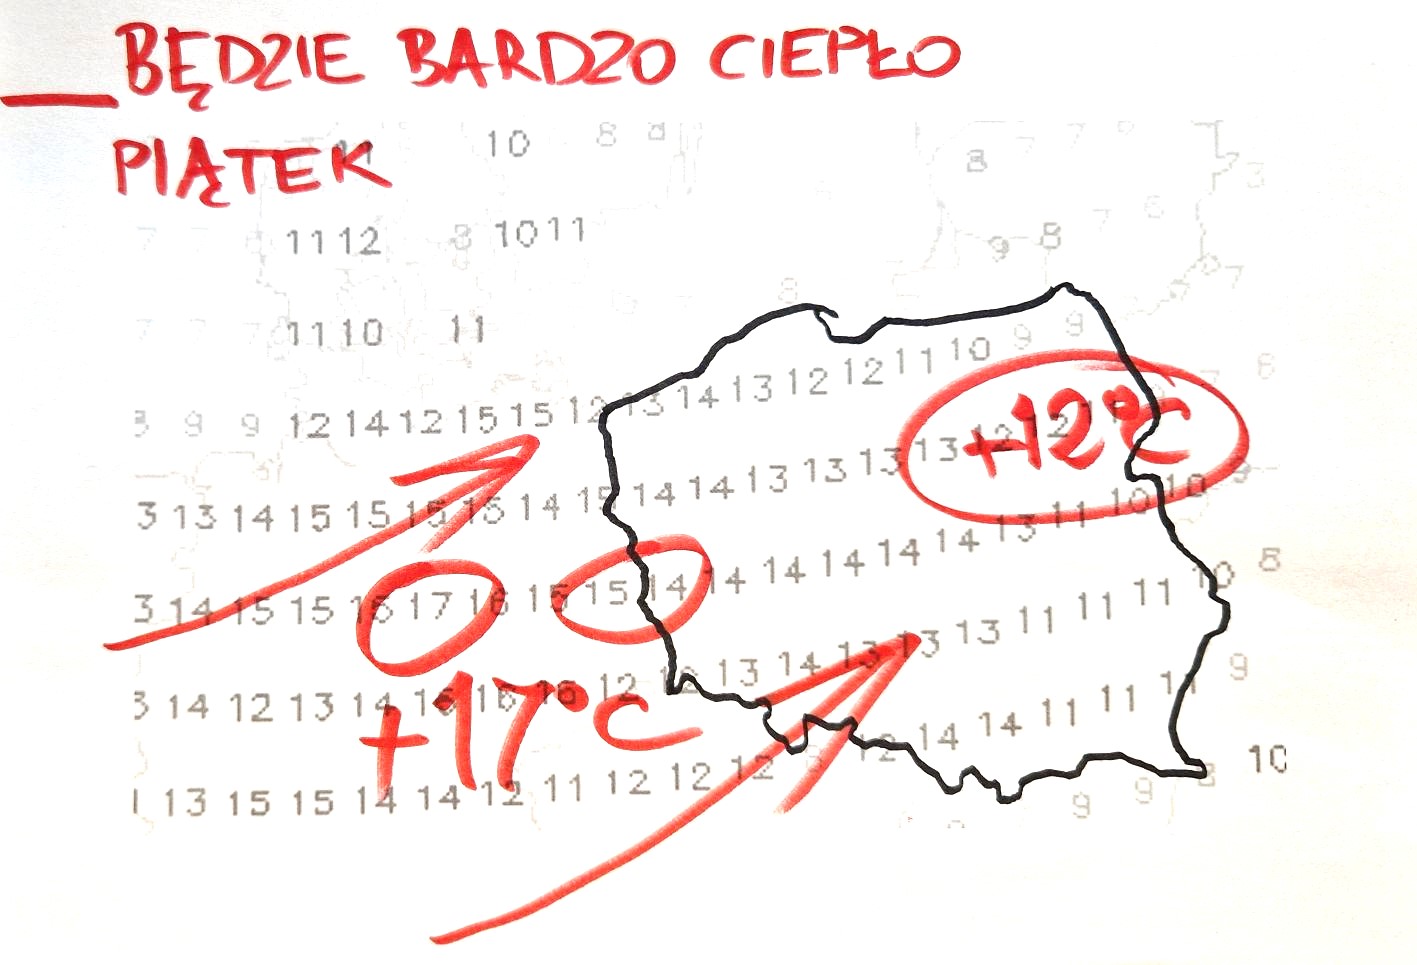 BĘDZIE BARDZO CIEPŁO
PIĄTEK
10 8 8
8 7 7 9 7 3
7 7 11 12 8 10 11 9 8 7 6
7 7 7 11 10 11 8 7
9 9 12 14 12 15 15 12 13 14 13 12 12 11 10 9 9
+12°C
3 13 14 15 15 15 15 14 15 14 14 13 13 13 13 12 12
3 14 15 15 16 17 16 15 15 14 14 14 14 14 14 13 11 10 10 9
3 14 12 13 14 16 16 16 12 12 13 14 13 13 13 11 11 11 10 8
+17°C
13 15 15 14 14 12 11 12 12 12 12 14 14 11 11 11 9
9 9 8 10